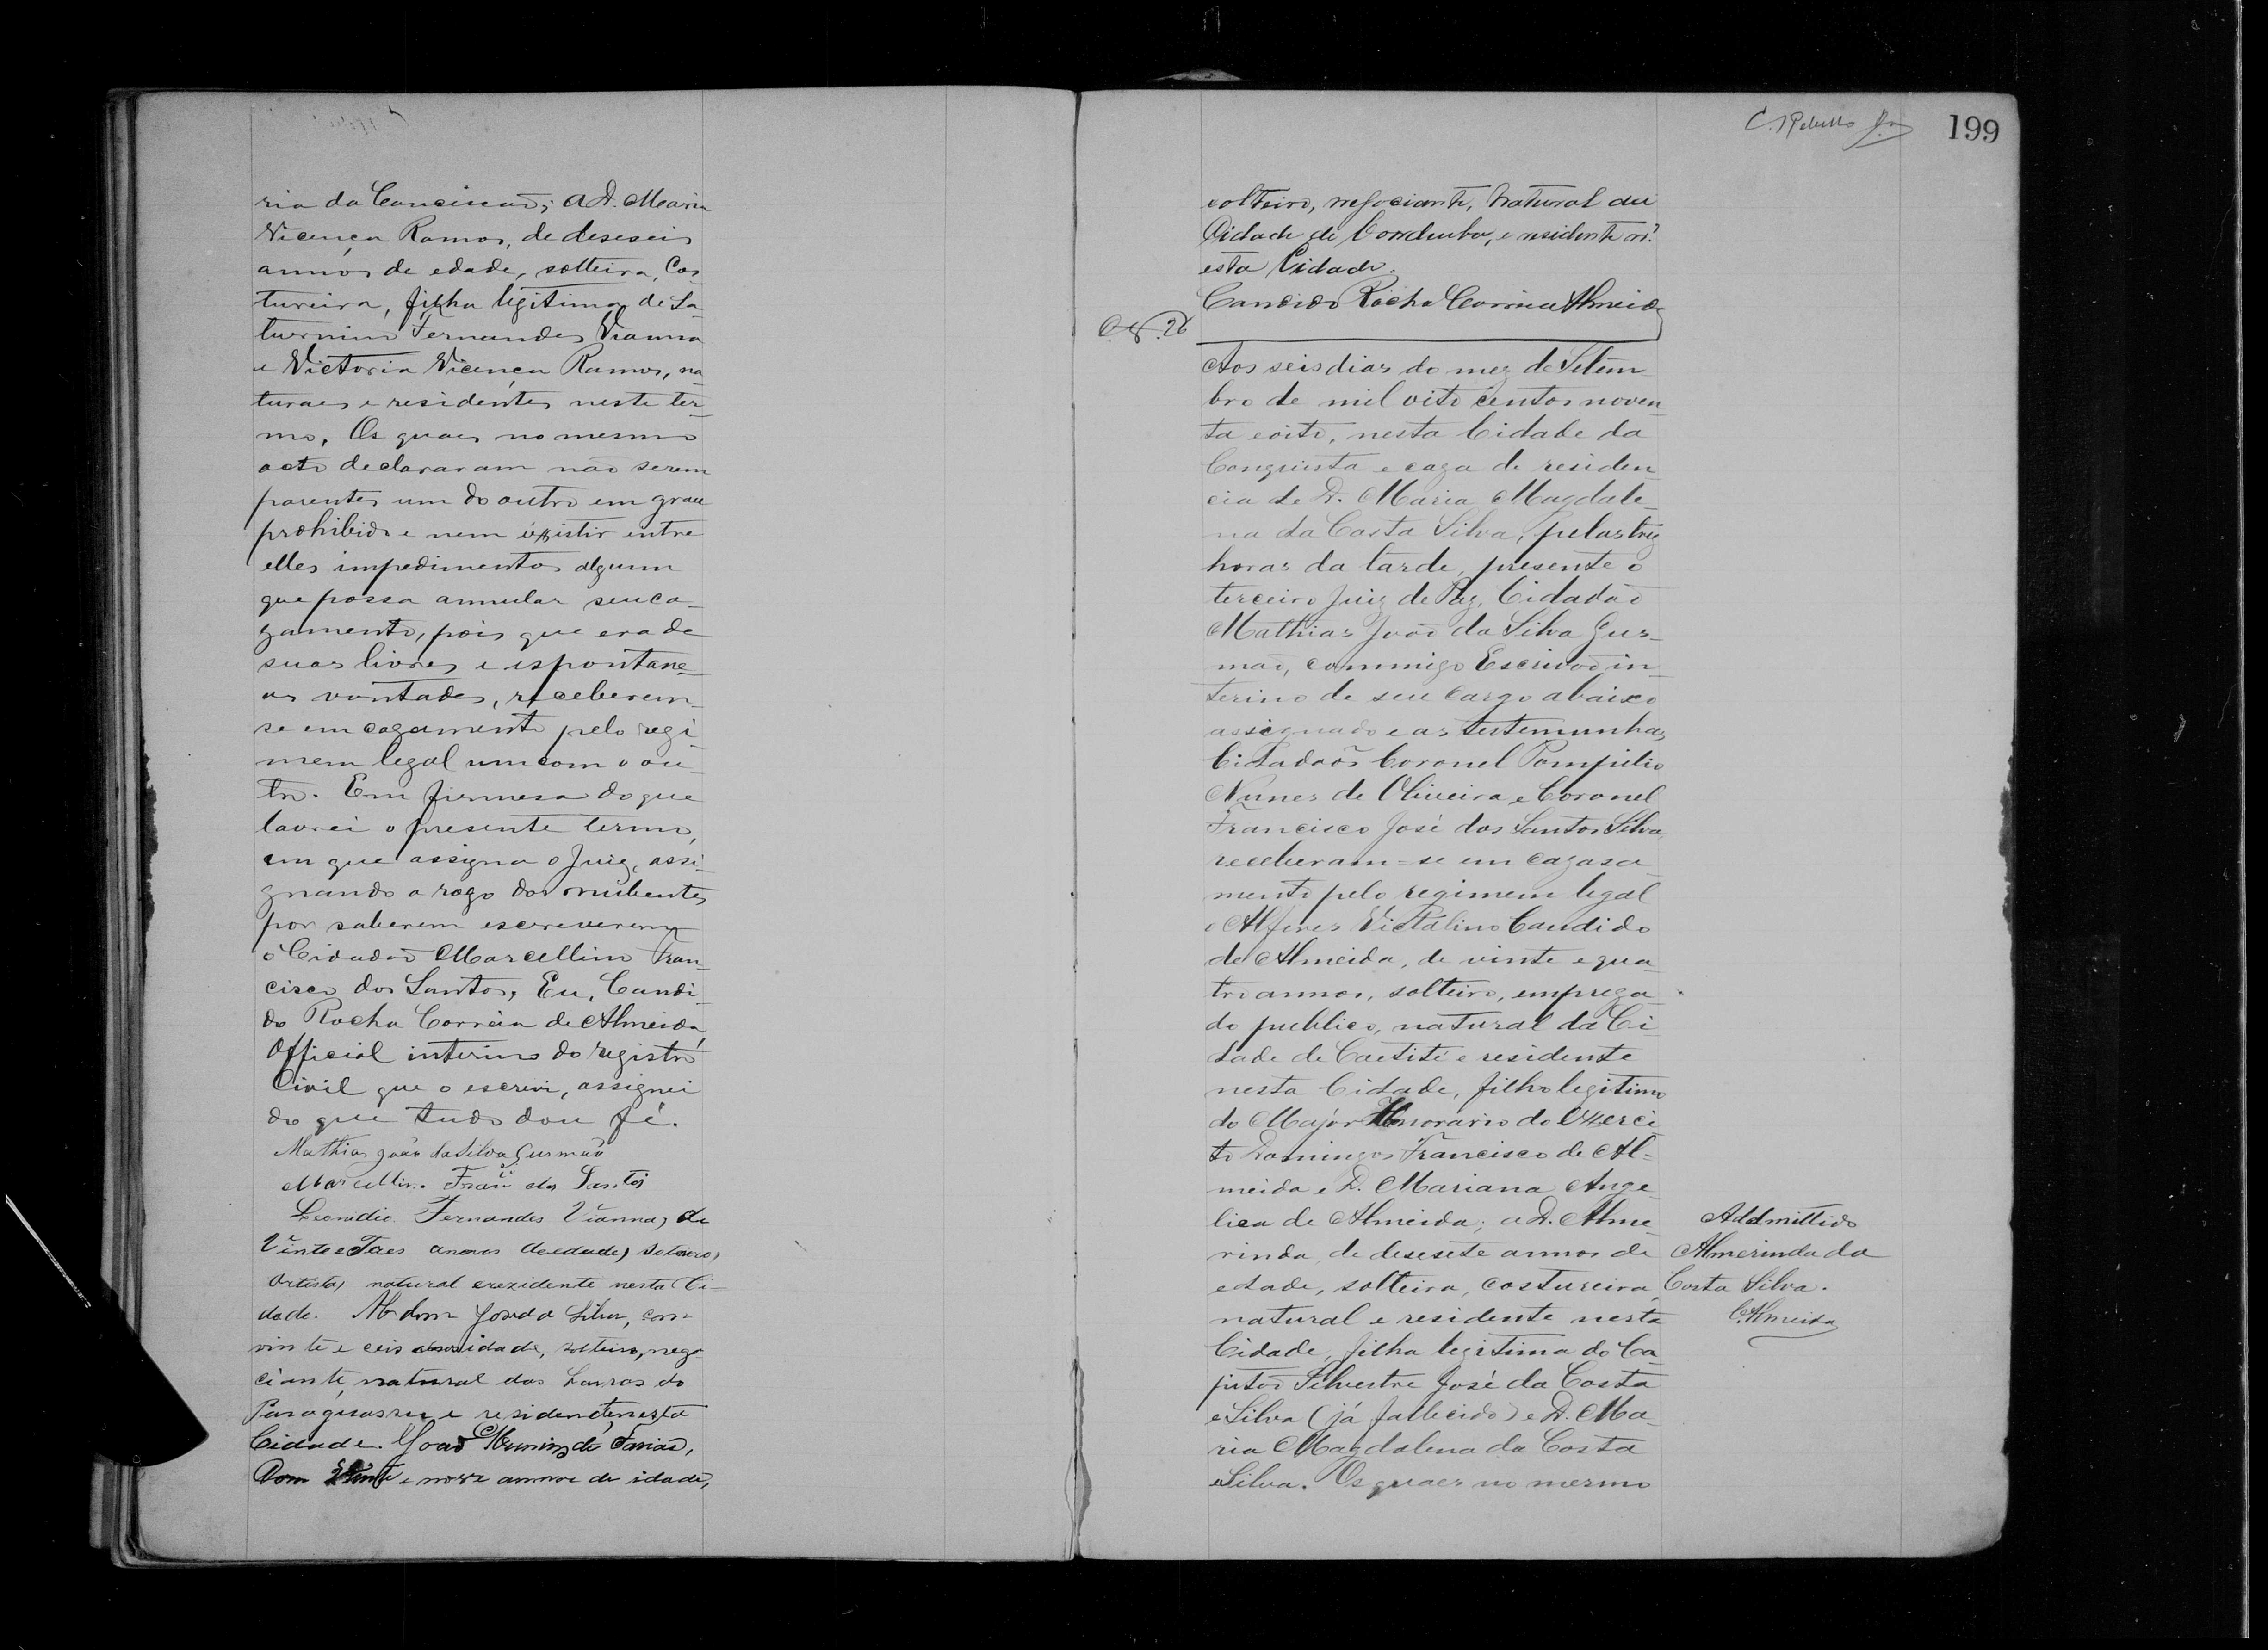 ria da Conceicaõ; a D. Maria
Vicença Ramos, de deseseis
annos de edade, solteira, Cos
tureira, filha legitima de Sa-
turnino Fernandes Vianna
e Victoria Vicença Ramos, na
turaes e residentes neste ter-
mo. Os quaes no mesmo
acto declararam naõ serem
parentes um do outro em grau
prohibido e nem existir entre
elles impedimentos algum
que possa annular seu ca-
zamento, pois que era de
suas livres e espontane-
as vontades, receberem-
se em cazamento pelo regi-
mem legal um com o ou-
tro. Em firmesa do que
lavrei o presente termo,
em que assigna o Juiz, assi-
gnando a rogo dos nubentes
por saberem escreverem
o Cidadaõ Marcellino Fran-
cisco dos Santos, Eu, Candi-
do Rocha Corrêia de Almeida,
Official interino do registro
Civil que o escrevi, assignei
do que tudo dou fé.
Mathias Joaõ da Silva Gusmaõ
Marcellino Franco dos Santos
Leonidio Fernandes Vianna, de
Vinte e Tres annos de edade, solteiro,
Artista, natural e rezidente nesta Ci-
dade. Abdom José da Silva, com
vinte e ceis anos idade, solteiro, nego-
ciante, natural das Lavras do
Paraguassu e residente nesta
Cidade. Joaõ de Farias,
Com Vinte e nove annos de idade,
C. Rebello Jor
199
solteiro, negociante, natural da
Cidade de Condeuba, e residente n
esta Cidade.
Candido Rocha Correia Almeida
26
Aos seis dias do mez de Setem-
bro de mil oito centos noven
ta e oito, nesta Cidade da
Conquista e caza de residen
cia de D. Maria Magdale-
na da Costa Silva, pelas trez
horas da tarde, presente o
terceiro Juiz de Paz, Cidadaõ
Mathias Joaõ da Silva Gus-
maõ, commigo Escrivaõ in-
terino de seu cargo abaixo
assignado e as testemunhas
Cidadaõs Coronel Pompilio
Nunes de Oliveira e Coronel
Francisco José dos Santos Silva,
receberam-se em cazasa-
mento pelo regimem legal
o Alferes Victalino Candido
de Almeida, de vinte e qua-
tro annos, solteiro, emprega-
do publico, natural da Ci-
dade de Caetité e residente
nesta Cidade, filho legitimo
do Major Honorario do Exerci-
to Domingos Francisco de Al-
meida e D. Mariana Ange-
lica de Almeida; a D. Alme-
rinda, de desesete annos de
edade, solteira, costureira,
natural e residente nesta
Cidade, filha legitima do Ca-
pitaõ Silvestre José da Costa
e Silva (já fallecido) e D. Ma-
ria Magdalena da Costa
e Silva. Os quaes no mesmo
Addmittido
Almerinda da
Costa Silva.
C. Almeida